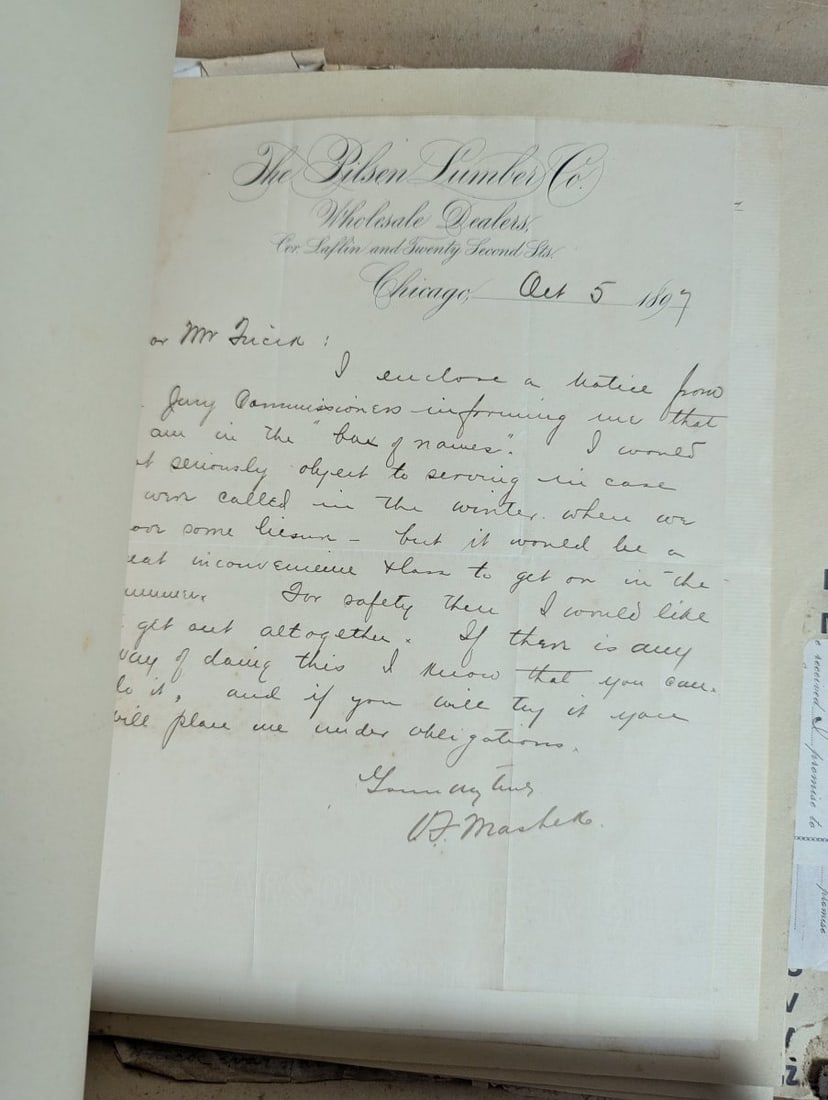 The Pilsen Lumber Co.
Wholesale Dealers,
Cor. Laflin and Twenty Second Sts.
Chicago, Oct 5 1897
Mr :
I enclose a notice from
Jury Commissioners informing me that
am in the "box of names". I would
seriously object to serving in case
were called in the winter when we
some liesure - but it would be a
inconvenience & loss to get on in the
For safety then I would like
get out altogether. If there is any
way of doing this I know that you can
do it, and if you will try it you
will place me under obligations.
Yours very truly
V.F. Mashek.
e received I promise to
promise